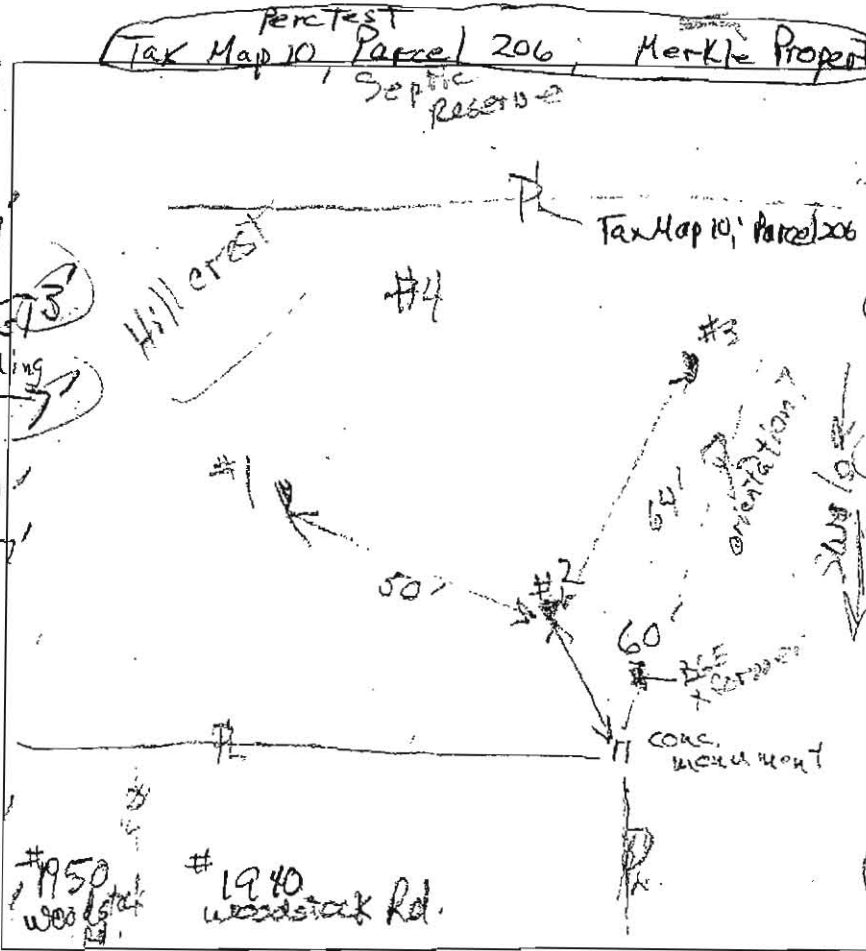 Perc Test
Tax Map 10, Parcel 206; Merkle Proper
Septic
Reserve
PL
Tax Map 10, Parcel 206
Hillcrest
#4
#3
3'
ing
7'
#1
orientation
64'
50'
#2
60'
corner
PL
conc.
monument
PL
#1950
Woodstock
Rd.
#1940
Woodstock Rd.